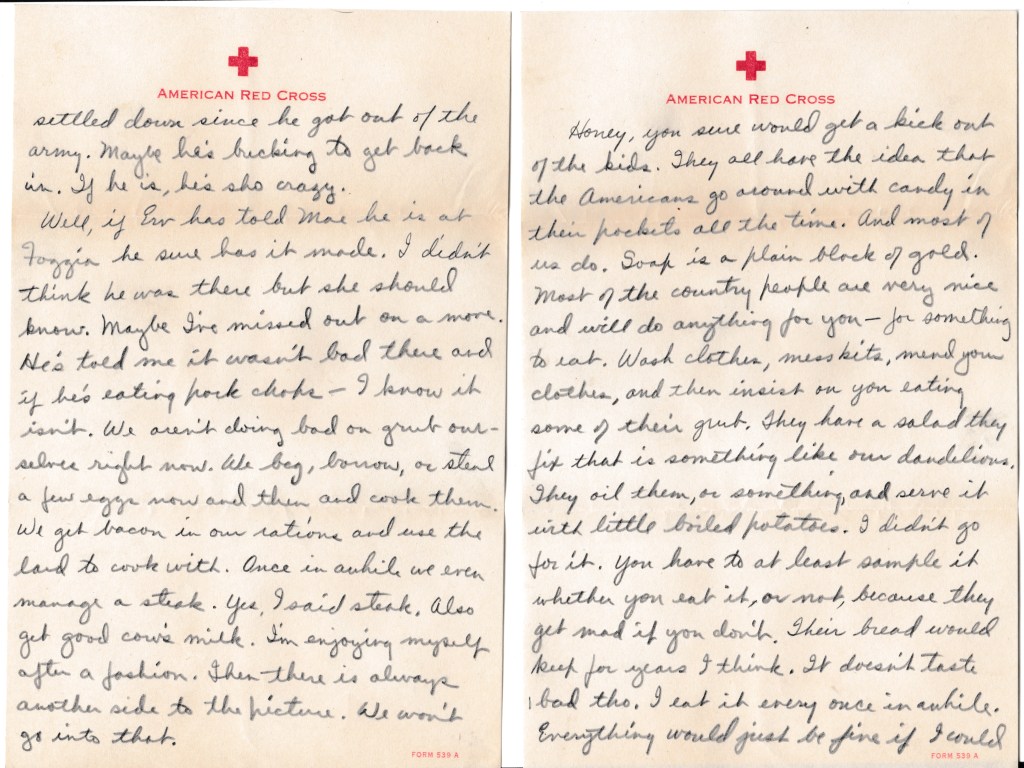 AMERICAN RED CROSS
settled down since he got out of the
army. Maybe he's bucking to get back
in. If he is, he's sho crazy.
Well, if Erv has told Mae he is at
Foggia he sure has it made. I didn't
think he was there but she should
know. Maybe I've missed out on a move.
He's told me it wasn't bad there and
if he's eating pork chops - I know it
isn't. We aren't doing bad on grub our-
selves right now. We beg, borrow, or steal
a few eggs now and then and cook them.
We get bacon in our rations and use the
lard to cook with. Once in awhile we even
manage a steak. Yes, I said steak. Also
get good cow's milk. I'm enjoying myself
after a fashion. Then there is always
another side to the picture. We won't
go into that.
FORM 539 A
AMERICAN RED CROSS
Honey, you sure would get a kick out
of the kids. They all have the idea that
the Americans go around with candy in
their pockets all the time. And most of
us do. Soap is a plain block of gold.
Most of the country people are very nice
and will do anything for you - for something
to eat. Wash clothes, messkits, mend your
clothes, and then insist on you eating
some of their grub. They have a salad they
fix that is something like our dandelions.
They oil them, or something, and serve it
with little boiled potatoes. I didn't go
for it. You have to at least sample it
whether you eat it, or not, because they
get mad if you don't. Their bread would
keep for years I think. It doesn't taste
bad tho. I eat it every once in awhile.
Everything would just be fine if I could
FORM 539 A